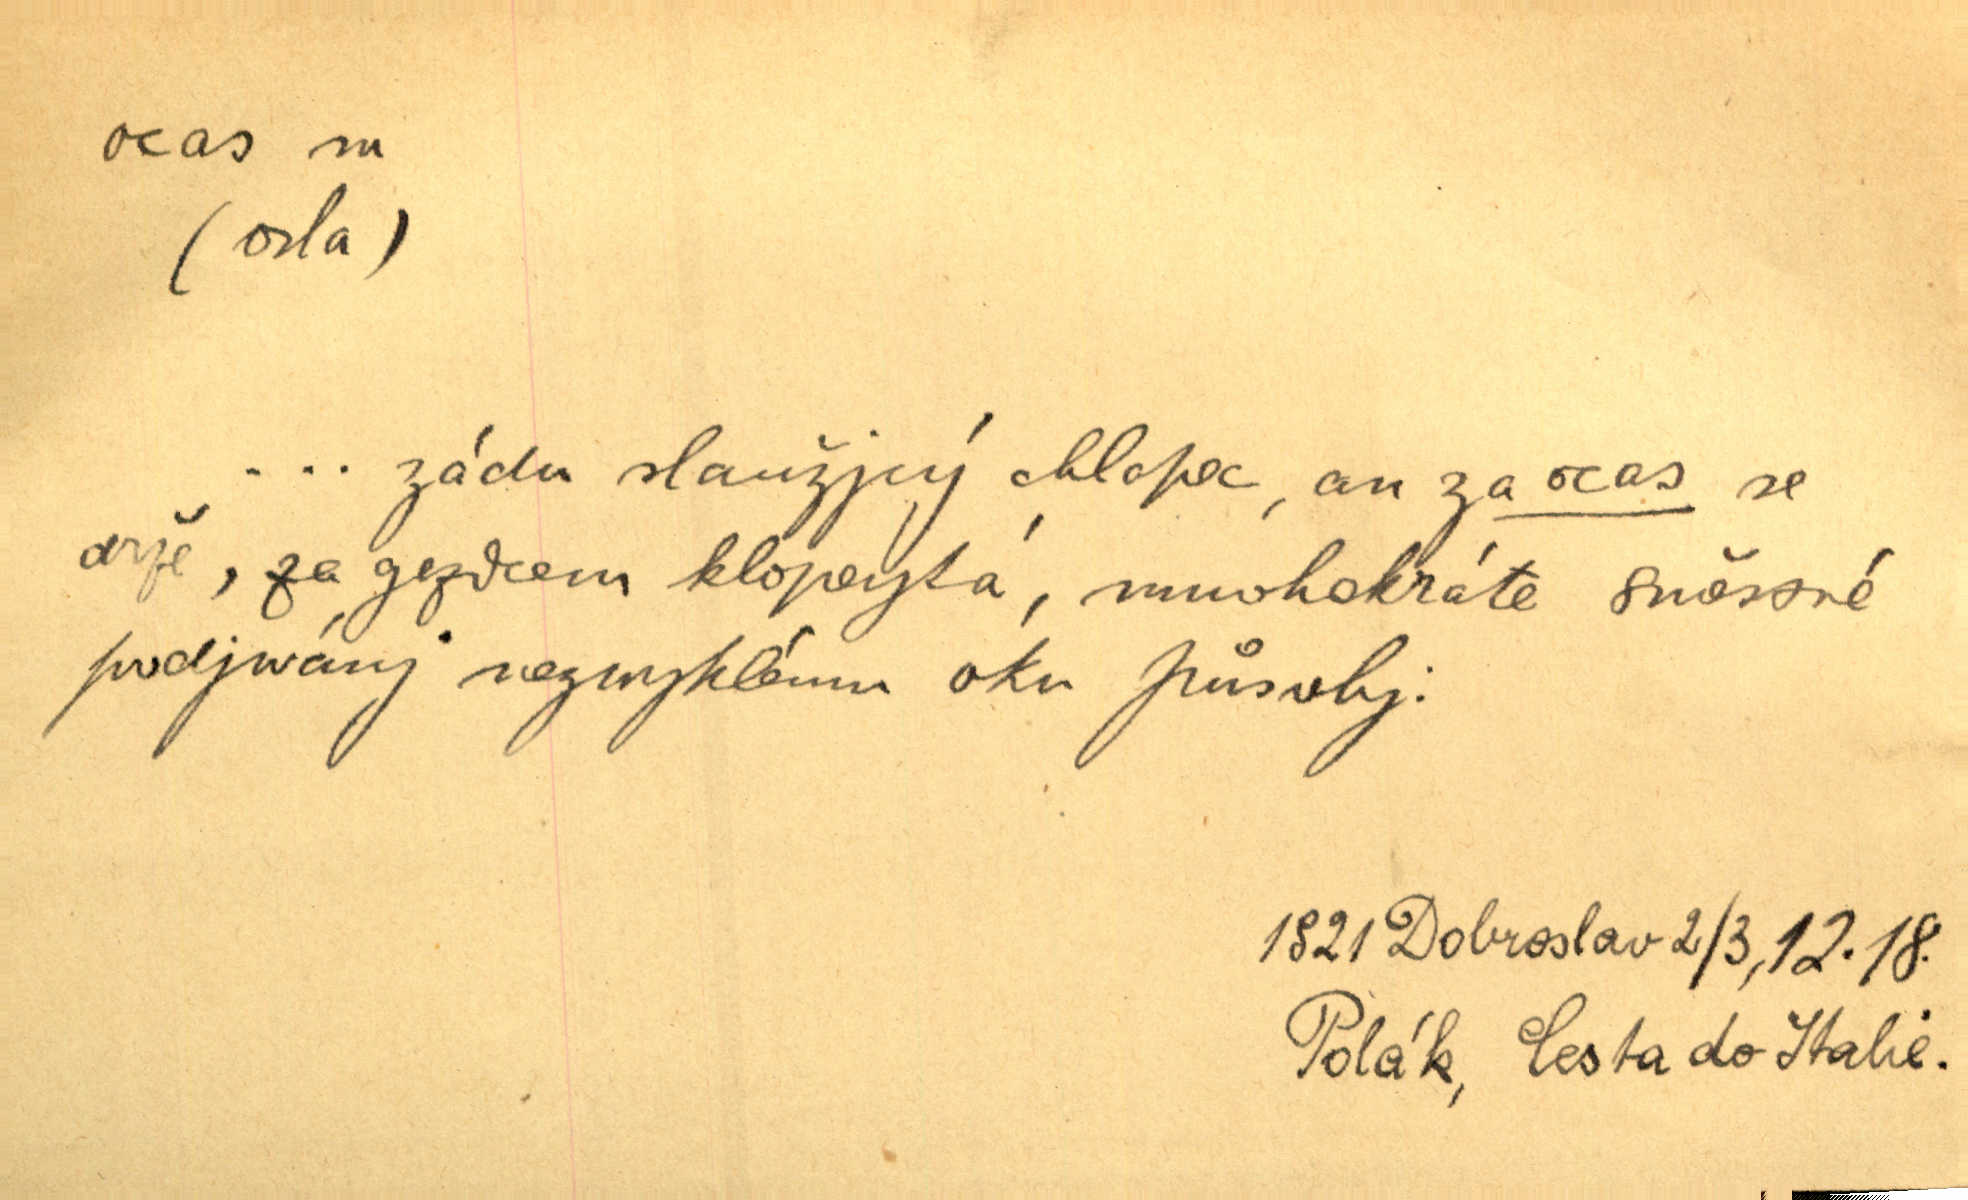 ocas m
(osla)
... zádu slaužjcý chlapec, an za ocas se
držje, za gezdcem klopeytá, mnohokráte směssné
podjwánj nezwyklému oku působj.
1821 Dobroslav 2/3, 12. 18.
Polák, Cesta do Italie.